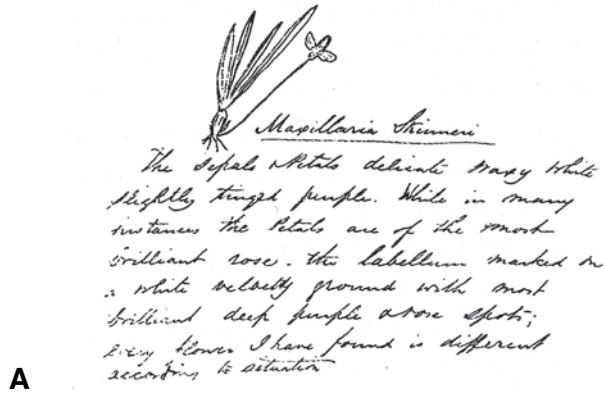 Maxillaria Skinneri
The Sepals & Petals delicate waxy white
slightly tinged purple. While in many
instances the Petals are of the most
brilliant rose. the labellum marked on
a white velvetty ground with most
brilliant deep purple & rose spots;
every flower I have found is different
according to situation
A